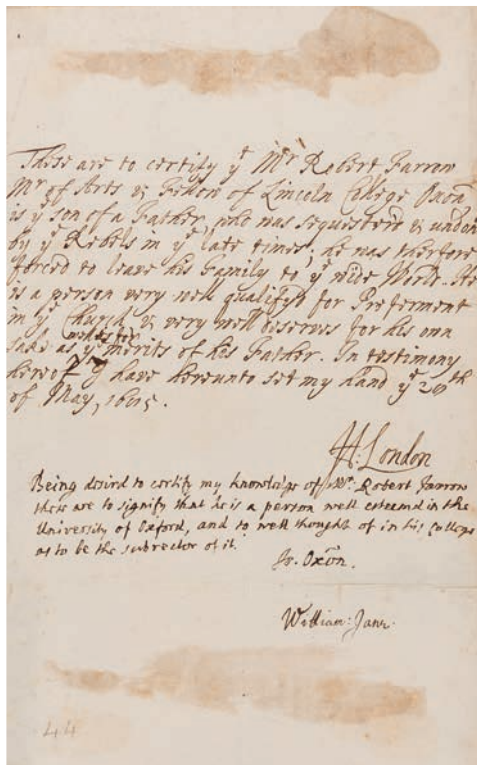 These are to certify yt Mr Robert Farrow
Mr of Arts & Fellow of Lincoln College Oxon
is ye son of a Father, who was sequesterd & undon
by ye Rebels in ye late times; he was therfore
forced to leave his Family to ye wide World. He
is a person very well qualifyd for Preferment
in ye Church, & very well deserves for his own
sake as well as for ye merits of his Father. In testimony
hereof I have hereunto set my hand ye 20th
of May, 1685.
H: London
Being desird to certify my knowledge of Mr. Robert Farrow
these are to signify that he is a person well esteemd in the
University of Oxford, and so well thought of in his College
as to be the subrector of it.
Jo. Oxon.
William: Jane.
44